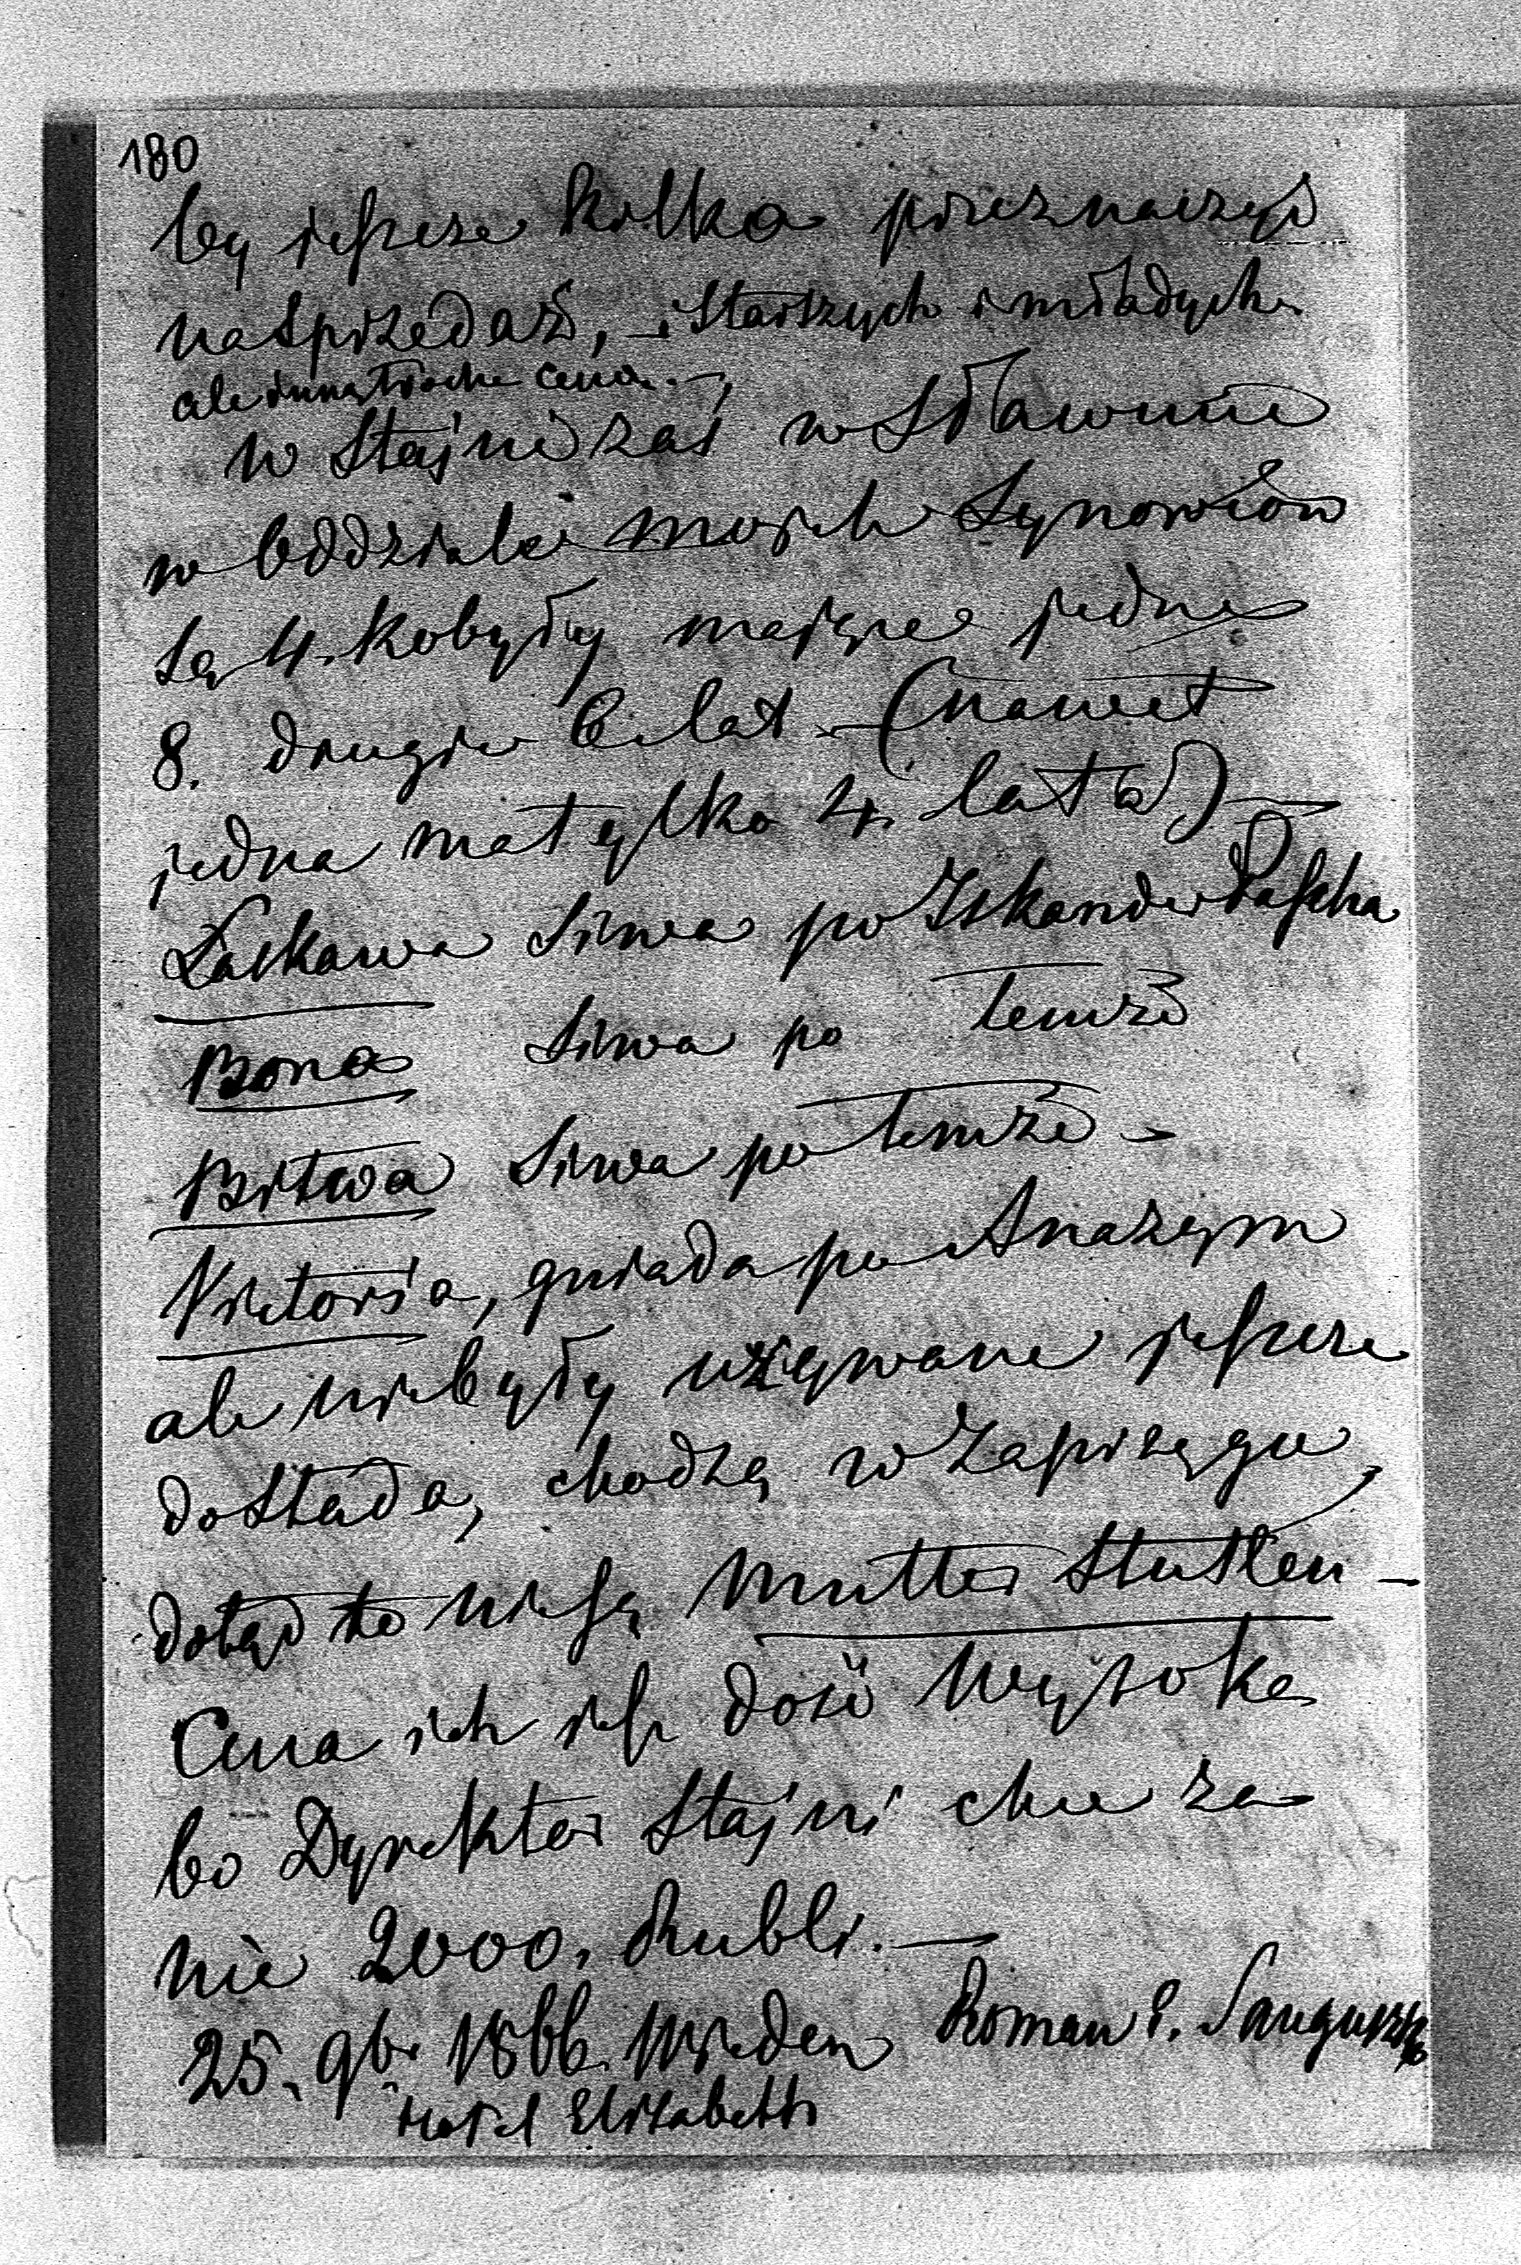 180
by jeszcze kilka przeznaczyć
na Sprzedaż, – i Starszych i młodych
ale inną trochę cenę. –,
w Stajni zaś w Sławucie
w Oddziale moich Synowców
Są 4. Kobyły mające jedne
8. drugie 6. lat – (nawet
jedna ma tylko 4. lata) –
Łaskawa Siwa po Iskander Pascha
Bona Siwa po temże
Bitwa Siwa po temże –
Victoria, gniada po Anazym
ale nie były używane jeszcze
do Stada, chodzą w Zaprzęgu,
dotąd to nie są Mutter Stutten –
Cena ich jest dość wysoka
bo Dyrektor Stajni chce za
nie 2000. Rubli. –
25. 9br 1866. Wieden Roman S. Sanguszko
Hotel Elisabeth